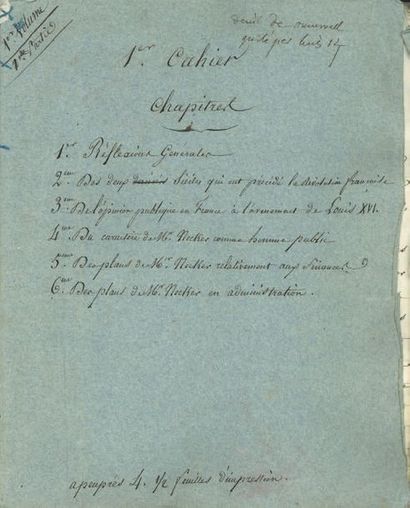 1er Volume
1ère Partie
1er Cahier
Chapitres
1er Réflexions Generales
2eme Des deux derniers Siècles qui ont précédé la révolution française
3eme De l'opinion publique en France à l'avenement de Louis XVI.
4eme Du caractère de Mr. Necker comme homme public
5eme Des plans de Mr. Necker relativement aux finances
6eme Des plans de Mr. Necker en administration.
apeuprès 4. 1/2 feuilles d'impression.